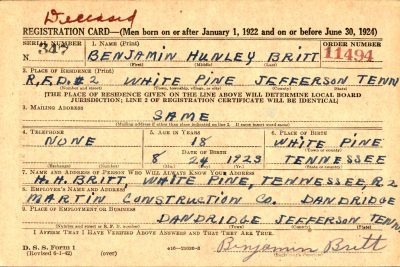 Deceased
REGISTRATION CARD—(Men born on or after January 1, 1922 and on or before June 30, 1924)
SERIAL NUMBER 1. Name (Print) ORDER NUMBER
N 347 BENJAMIN HUNLEY BRITT 11494
(First) (Middle) (Last)
2. PLACE OF RESIDENCE (Print)
R.F.D. #2 WHITE PINE JEFFERSON TENN
(Number and street) (Town, township, village, or city) (County) (State)
[THE PLACE OF RESIDENCE GIVEN ON THE LINE ABOVE WILL DETERMINE LOCAL BOARD
JURISDICTION; LINE 2 OF REGISTRATION CERTIFICATE WILL BE IDENTICAL]
3. MAILING ADDRESS
SAME
(Mailing address if other than place indicated on line 2. If same insert word same)
4. TELEPHONE 5. AGE IN YEARS 6. PLACE OF BIRTH
NONE 18 WHITE PINE
DATE OF BIRTH (Town or county)
8 24 1923 TENNESSEE
(Exchange) (Number) (Mo.) (Day) (Yr.) (State or country)
7. NAME AND ADDRESS OF PERSON WHO WILL ALWAYS KNOW YOUR ADDRESS
H.H. BRITT, WHITE PINE, TENNESSEE, R2
8. EMPLOYER'S NAME AND ADDRESS
MARTIN CONSTRUCTION CO. DANDRIDGE
9. PLACE OF EMPLOYMENT OR BUSINESS
DANDRIDGE JEFFERSON TENN
(Number and street or R. F. D. number) (Town) (County) (State)
I AFFIRM THAT I HAVE VERIFIED ABOVE ANSWERS AND THAT THEY ARE TRUE.
D. S. S. Form 1
(Revised 6-1-42) (over) Benjamin Britt